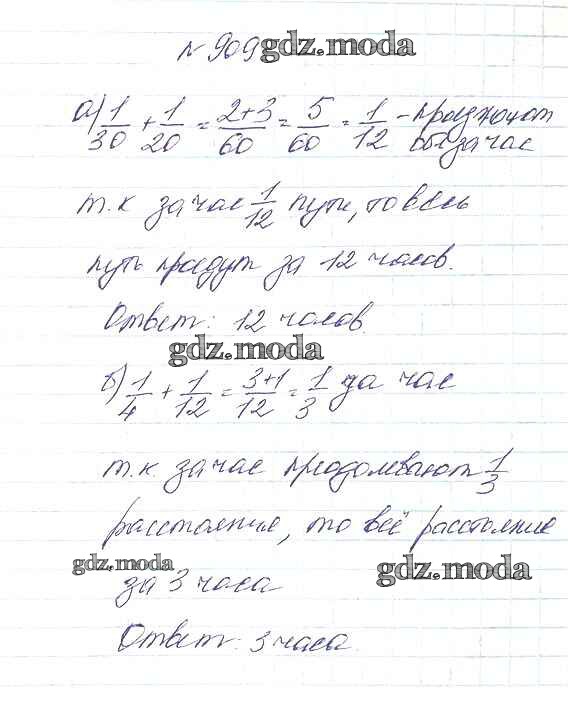 № 909 gdz.moda
а) 1/30 + 1/20 = 2+3/60 = 5/60 = 1/12 –
за час
т.к за час 1/12 пути, то весь
путь пройдут за 12 часов.
Ответ: 12 часов.
gdz.moda
б) 1/4 + 1/12 = 3+1/12 = 1/3 за час
т.к за час преодолевают 1/3
расстояния, то всё расстояние
gdz.moda за 3 часа gdz.moda
Ответ: 3 часа.